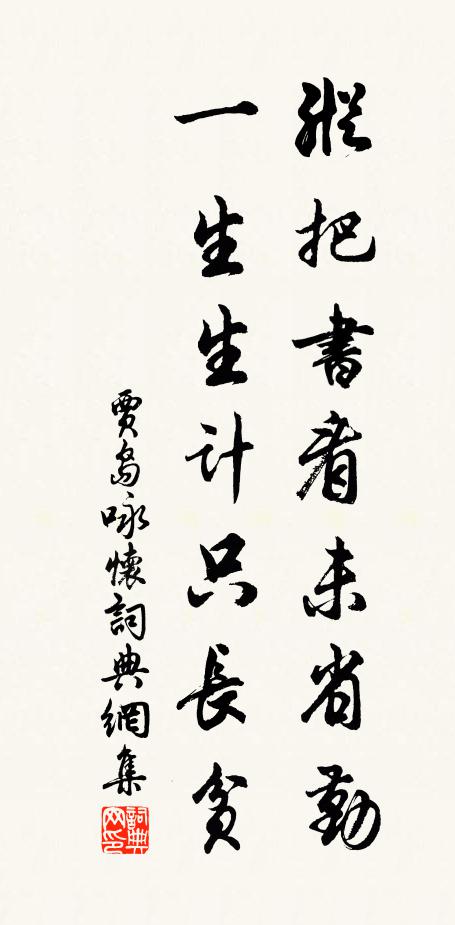 縱把書看未省勤
一生生計只長貧
賈島咏懷詞典網集
詞典网印